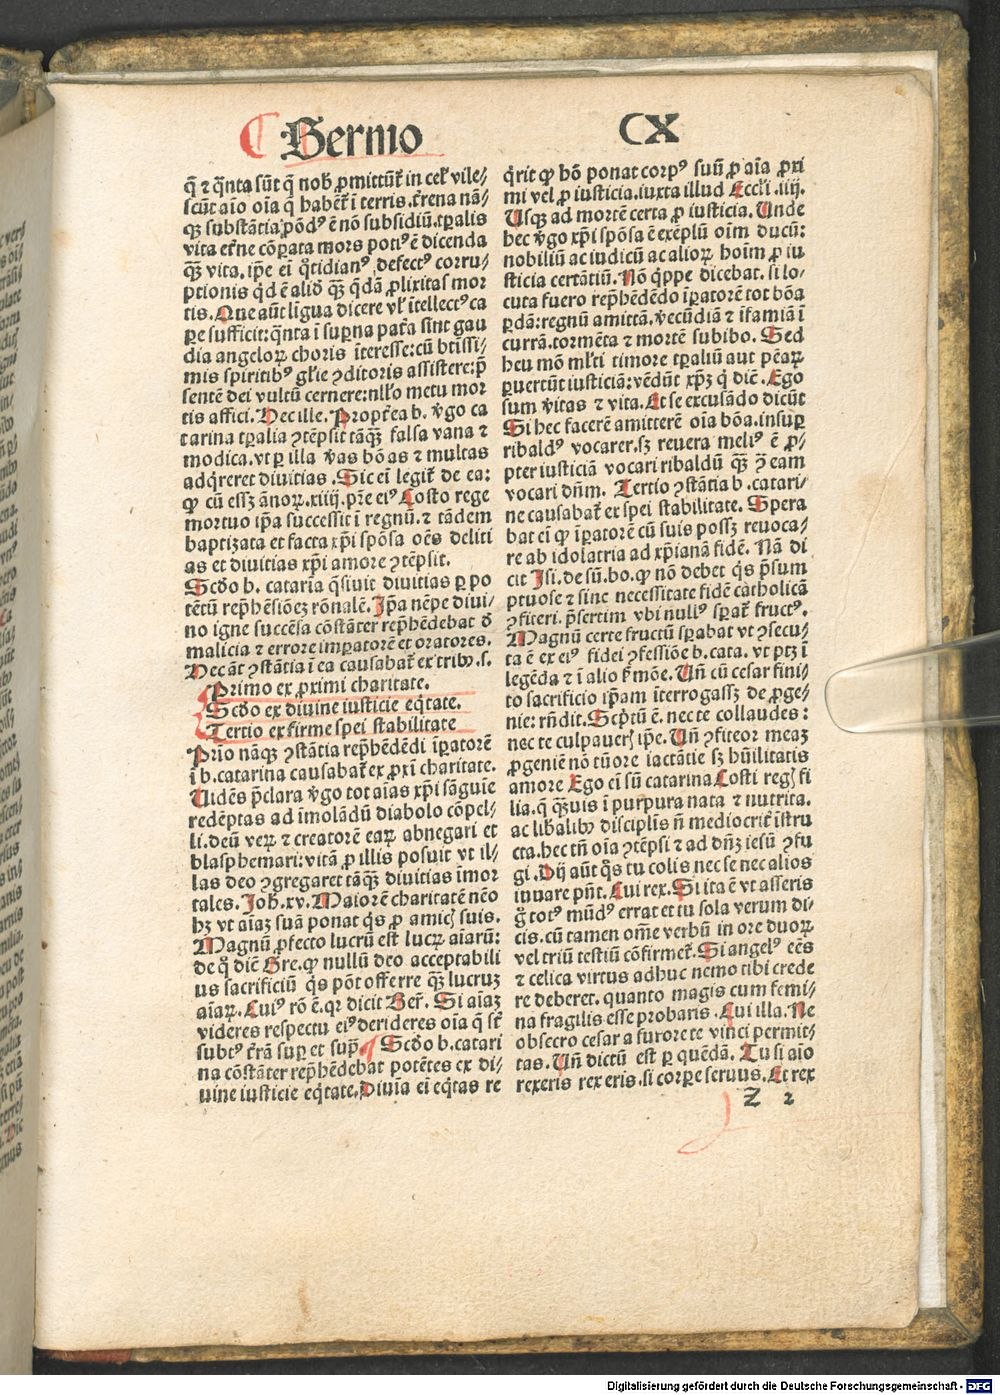 Sermo CX
q̄ ⁊ q̄nta sūt q̄ nob̄ ꝓmittūt᷑ in cel̄ vile⸗
scūt aīo oīa q̄ habēt᷑ ī terris. t᷑rena nā⸗
qꝫ substātia pōdꝰ ē nō subsidiū. tꝑalis
vita et᷑ne cōꝑata mors potiꝰ ē dicenda
qꝫ̄ vita. ip̄e ei̅ q̄tidianꝰ defectꝰ corru⸗
ptionis qd̄ ē aliđ qꝫ̄ q̄dā ꝓlixitas mor
tis. Que aūt līgua dicere vl̄ ītellectꝰ ca
ꝑe sufficit: q̄nta ī suꝑna pat᷑a sīnt gau
dia angeloꝝ choris īteresse: cū btissi⸗
mis spiritibꝰ gl̄ie ꝯditoris assistere: p̄
sentē dei vultū cernere: nll̄o metu mor
tis affici. Hec ille. Propt᷑ea b. v̄go ca
tarina tꝑalia ꝯtēpsit tāqꝫ̄ falsa vana ⁊
modica. vt ꝑ illa v̄as bōas ⁊ multas
adq̄reret diuitias. Sic ei̅ legit᷑ de ea:
ꝙ cū essꝫ ānoꝝ .xiiij. pr̄e eiꝰ Costo rege
mortuo ip̄a successit ī regnū. ⁊ tādem
baptizata et facta xp̄i spōsa oēs deliti
as et diuitias xp̄i amore ꝯtēpsit.
Scđo b. cataria q̄siuit diuitias ꝑ po
tētū rep̄hēsiōeꝫ rōnalē. Ip̄a nēpe diui⸗
no igne succēsa cōstāter rep̄hēdebat đ
malicia ⁊ errore imꝑatorē et oratores.
Hec āt ꝯstātia ī ea causabat᷑ ex tribꝰ. s.
Primo ex ꝓximi charitate.
Scđo ex diuine iusticie eq̄tate.
Tertio ex firme spei stabilitate
Prīo nāqꝫ ꝯstātia rep̄hēdēdi īꝑatorē
ī b. catarina causabat᷑ ex ꝓxī charitate.
Uidēs p̄clara v̄go tot aīas xp̄i sāguie
redēptas ad īmolādū diabolo cōpel⸗
li. deū veꝝ ⁊ creatorē eaꝝ abnegari et
blasphemari: vitā ꝓ illis posuit vt il⸗
las deo ꝯgregaret tāqꝫ̄ diuitias īmor
tales. Joh̄. xv. Maiorē charitatē nēo
hꝫ vt aīaꝫ suā ponat q̄s ꝓ amicꝭ suis.
Magnū ꝓfecto lucrū est lucꝝ aiarū:
de q̊ diē Gre. ꝙ nullū deo acceptabili
us sacrificiū q̄s pōt offerre qꝫ̄ lucruꝫ
aīaꝝ. Cuiꝰ rō ē. qꝛ dicit Ber̄. Si aīaꝫ
videres respectu eiꝰ derideres oīa q̄ st᷑
subtꝰ t᷑rā suꝑ et sup̄. Scđo b. catari
na cōstāter rep̄hēdebat potētes ex di⸗
uine iusticie eq̄tate. Diuīa ei̅ eq̄tas re
q̄rit ꝙ hō ponat corpꝰ suū ꝓ aīa ꝓxi
mi vel ꝓ iusticia. iuxta illud Eccl̄i .iiij.
Usqꝫ ad mortē certa ꝓ iusticia. Unde
hec v̄go xp̄i spōsa ē exēplū oīm ducū:
nobiliū ac iudicū ac alioꝝ hoīm ꝓ iu
sticia certātiū. Nō q̄ppe dicebat. si lo⸗
cuta fuero rep̄hēdēdo īꝑatorē tot bōa
ꝑdā: regnū amittā. v̄ecūdiā ⁊ īfamiā ī
currā. tormēta ⁊ mortē subibo. Sed
heu mō ml̄ti timore tꝑaliū aut pēaꝝ
ꝑuertūt iusticiā: vēdūt xp̄ꝫ q̄ diē. Ego
sum v̄itas ⁊ vita. Et se excusādo dicūt
Si hec facerē amitterē oīa bōa. insuꝑ
ribaldꝰ vocarer. sꝫ reuera meliꝰ ē ꝓ⸗
pter iusticiā vocari ribaldū qꝫ̄ ꝯ̄ eam
vocari dn̄m. Tertio ꝯstātia b. catari⸗
ne causabat᷑ ex spei stabilitate. Spera
bat ei̅ ꝙ īꝑatorē cū suis possꝫ reuoca⸗
re ab idolatria ad xp̄ianā fidē. Nā di
cit Isi. de sū. bo. ꝙ nō debet q̄s p̄sum
ptuose ⁊ sine necessitate fidē catholicā
ꝯfiteri. p̄sertim vbi nullꝰ sꝑat᷑ fructꝰ.
Magnū certe fructū sꝑabat vt ꝯsecu⸗
ta ē ex eiꝰ fidei ꝯfessiōe b. cata. vt ptꝫ ī
legēda ⁊ ī alio ẜmōe. Un̄ cū cesar fini⸗
to sacrificio ip̄am īterrogassꝫ de ꝓge⸗
nie: rn̄dit. Scptū ē. nec te collaudes:
nec te culpauerꝭ ip̄e. Un̄ ꝯfiteor meaꝫ
ꝓgeniē nō tūore iactātie sꝫ hūilitatis
amore Ego ei̅ sū catarina Costi regꝭ fi
lia. q̄ qꝫ̄uis ī purpura nata ⁊ nutrita.
ac lib̄alibꝰ disciplīs n̄ mediocrit᷑ īstru
cta. hec tn̄ oīa ꝯtēpsi ⁊ ad dn̄ꝫ iesū ꝯfu
gi. Dij aūt q̄s tu colis nec se nec alios
iuuare pn̄t. Cui rex. Si ita ē vt asseris
g̊ totꝰ mūdꝰ errat et tu sola verum di⸗
cis. cū tamen om̄e verbū in ore duoꝝ
vel triū testiū cōfirmet᷑. Si angelꝰ eēs
⁊ celica virtus adhuc nemo tibi crede
re deberet. quanto magis cum femi⸗
na fragilis esse probaris. Cui illa. Ne
obsecro cesar a furore te vinci permit⸗
tas. Un̄ dictū est ꝑ quēdā. Tu si aīo
rexeris rex eris. si corꝑe seruus. Et rex
Z 2
Digitalisierung gefördert durch die Deutsche Forschungsgemeinschaft - DFG